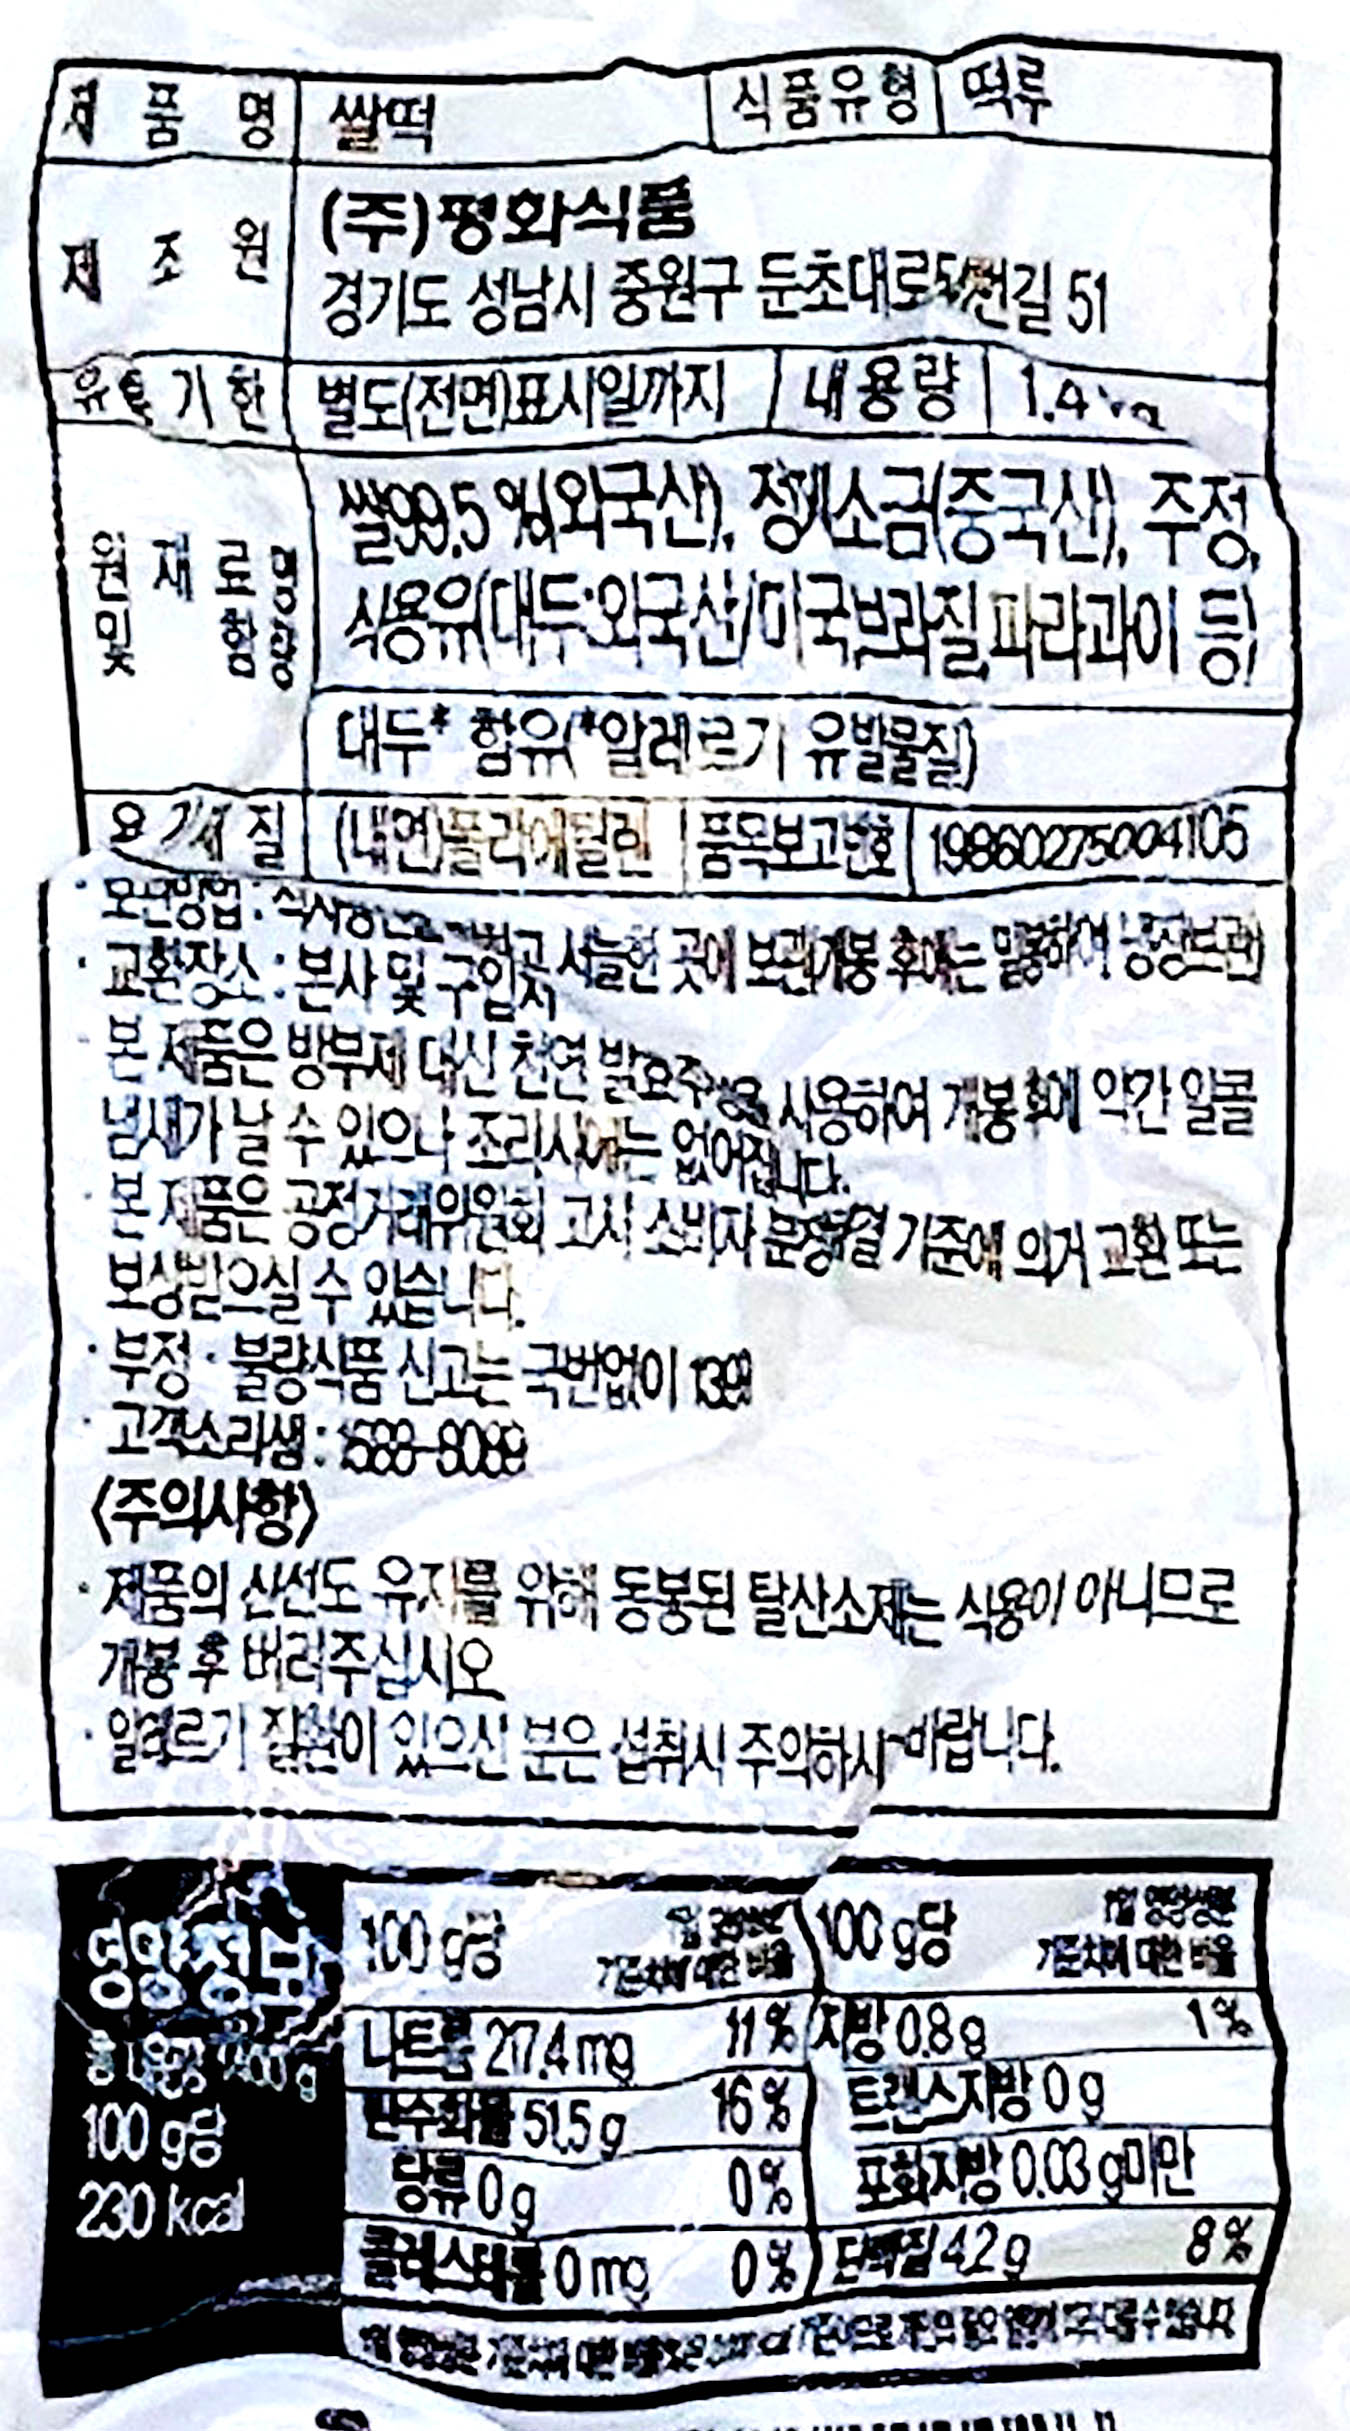 제 품 명 쌀떡 식품유형 떡류
제 조 원 (주)평화식품
경기도 성남시 중원구 둔촌대로 51
유통기한 별도(전면)표시일까지 내용량
원재료명 및 함량 쌀99.5%(외국산), 정제소금(중국산), 주정,
식용유(대두:외국산/미국,브라질,파라과이 등)
대두* 함유(*알레르기 유발물질)
용기재질 (내면)폴리에틸렌 품목보고번호 19860275004105
· 보관방법 : 직사광선 서늘한 곳에 보관(개봉 후에는 밀봉하여 냉장보관)
· 교환장소 : 본사 및 구입처
· 본 제품은 방부제 대신 천연 발효주정을 사용하여 개봉후에 약간 알콜
냄새가 날 수 있으나 조리시에는 없어집니다.
· 본 제품은 공정거래위원회 고시 소비자 분쟁해결 기준에 의거 교환 또는
보상받으실 수 있습니다.
· 부정 · 불량식품 신고는 국번없이 1399
· 고객소리샘 : 1588-8089
〈주의사항〉
· 제품의 신선도 유지를 위해 동봉된 탈산소제는 식용이 아니므로
개봉 후 버려주십시오
· 알레르기 질환이 있으신 분은 섭취시 주의하시 바랍니다.
영양정보
총 내용량 g
100 g당
230 kcal
100 g당 1일 영양성분 기준치에 대한 비율 100 g당 1일 영양성분 기준치에 대한 비율
나트륨 217.4 mg 11 % 지방 0.8 g 1 %
탄수화물 51.5 g 16 % 트랜스지방 0 g
당류 0 g 0 % 포화지방 0.03 g미만
콜레스테롤 0 mg 0 % 단백질 4.2 g 8 %